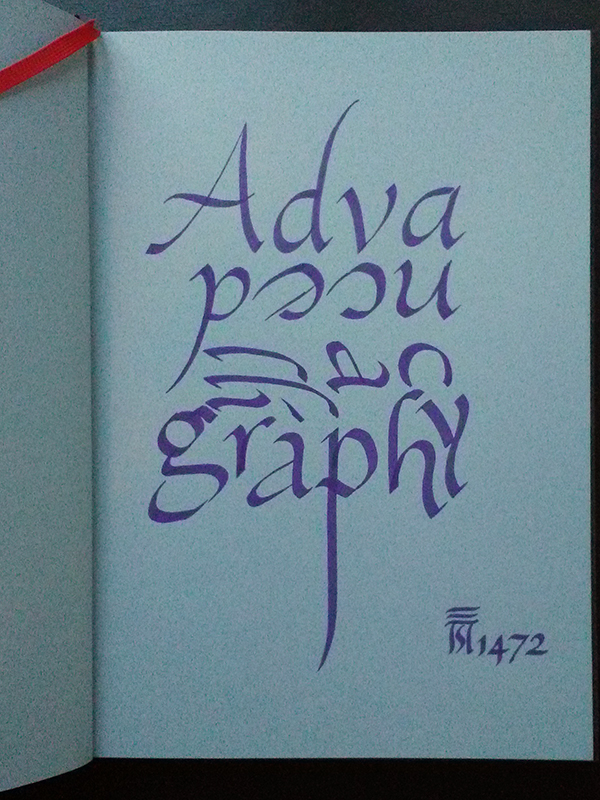 Adva
nced
calli
graphy
1472